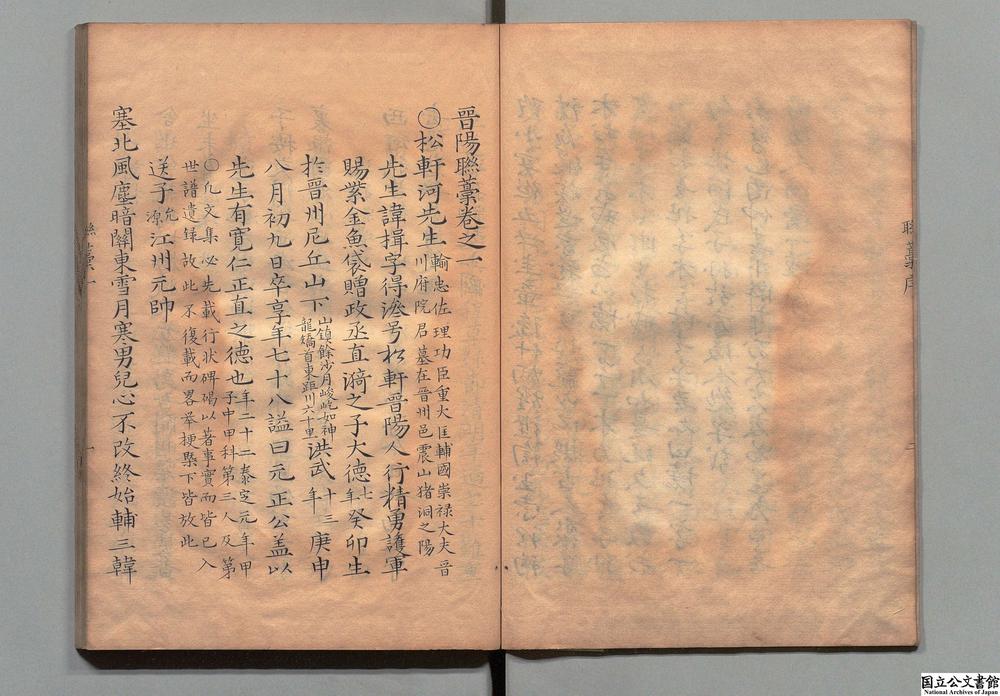 晋陽聮藁卷之一
○松軒河先生輸忠佐理功臣重大匡輔國崇禄大夫晋
川府院君墓在晋州邑震山猪洞之陽
先生諱楫字得濟号松軒晋陽人行精勇護軍
賜紫金魚袋贈政丞直漪之子大德七年癸卯生
於晋州尼丘山下山鎮餘沙月峻屹如神
龍矯首東距川六十里洪武十三年庚申
八月初九日卒享年七十八謚曰元正公盖以
先生有寛仁正直之德也年二十二泰定元年甲
子中甲科第三人及第
○凡文集必先載行状碑碣以著事實而皆已入
世譜遺録故此不復載而畧举梗槩下皆放此
送子允源江州元帥
塞北風塵暗關東雪月寒男兒心不改終始輔三韓
聮藁一
一
聮藁序
國立公文書館
National Archives of Japan